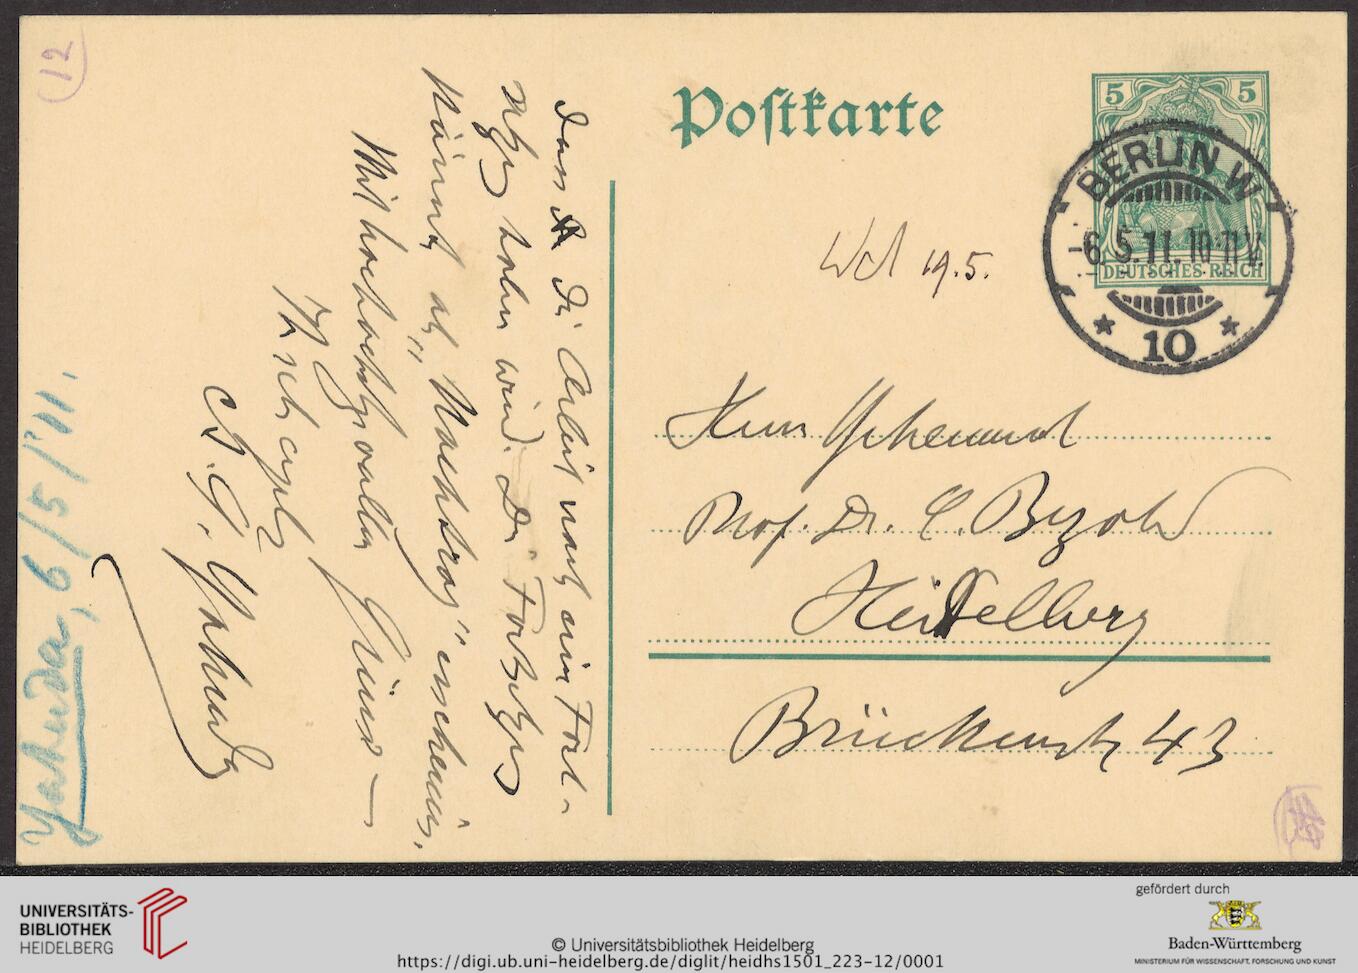 12
Postkarte
5 5
DEUTSCHES REICH
BERLIN W
-6.5.11.10-11V.
* 10 *
19.5.
Herrn Geheimrat
Prof. Dr. C. Bezold
Heidelberg
Brückenstr 43
dass die Arbeit noch eine Fort-
setzg haben wird. Die Fortsetzg
könnte als "Nachtrag" erscheinen.
Mit hochachtgsvollen Grüss
Ihr sehr ergeb
A. S. Yahuda
Yahuda, 6/5/'11.
UNIVERSITÄTS-
BIBLIOTHEK
HEIDELBERG
© Universitätsbibliothek Heidelberg
https://digi.ub.uni-heidelberg.de/diglit/heidhs1501_223-12/0001
gefördert durch
Baden-Württemberg
MINISTERIUM FÜR WISSENSCHAFT, FORSCHUNG UND KUNST